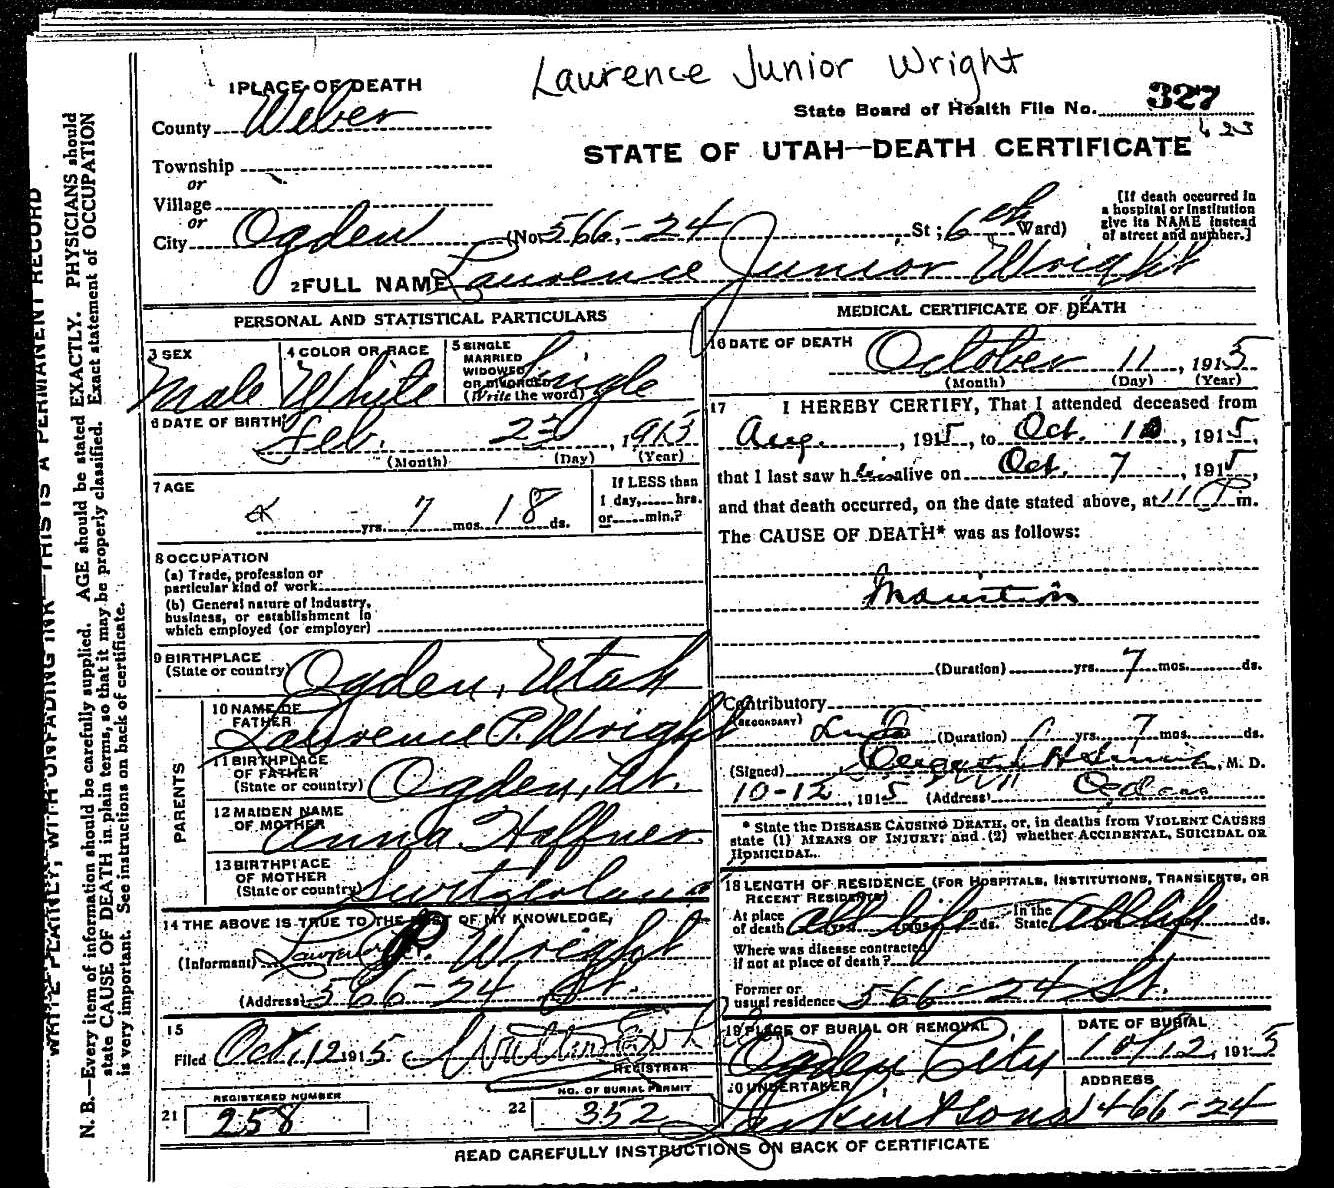 Lawrence Junior Wright
1 PLACE OF DEATH
County Weber
State Board of Health File No. 327
623
STATE OF UTAH—DEATH CERTIFICATE
Township
or
Village
or
City Ogden (No 566-24 St; 6th Ward)
[If death occurred in a hospital or institution give its NAME instead of street and number.]
2 FULL NAME Laurence Junior Wright
PERSONAL AND STATISTICAL PARTICULARS
3 SEX Male
4 COLOR OR RACE White
5 SINGLE MARRIED WIDOWED OR DIVORCED (Write the word) Single
6 DATE OF BIRTH Feb. 23, 1915
(Month) (Day) (Year)
7 AGE yrs. 7 mos. 18 ds.
If LESS than 1 day, hrs. or min.?
8 OCCUPATION
(a) Trade, profession or particular kind of work
(b) General nature of Industry, business, or establishment in which employed (or employer)
9 BIRTHPLACE (State or country) Ogden, Utah
PARENTS
10 NAME OF FATHER Lawrence P. Wright
11 BIRTHPLACE OF FATHER (State or country) Ogden, Ut.
12 MAIDEN NAME OF MOTHER Anna Haffner
13 BIRTHPLACE OF MOTHER (State or country) Switzerland
14 THE ABOVE IS TRUE TO THE BEST OF MY KNOWLEDGE,
(Informant) Lawrence P. Wright
(Address) 566-24 St.
15
Filed Oct. 12 1915
REGISTRAR
REGISTERED NUMBER
21 258
NO. OF BURIAL PERMIT
22 352
MEDICAL CERTIFICATE OF DEATH
16 DATE OF DEATH October 11, 1915
(Month) (Day) (Year)
17 I HEREBY CERTIFY, That I attended deceased from
Aug., 1915, to Oct. 10, 1915,
that I last saw him alive on Oct. 7, 1915,
and that death occurred, on the date stated above, at 11 P m.
The CAUSE OF DEATH* was as follows:
(Duration) yrs. 7 mos. ds.
Contributory
(SECONDARY) (Duration) yrs. 7 mos. ds.
(Signed) , M. D.
10-12, 1915 (Address) Ogden
* State the DISEASE CAUSING DEATH, or, in deaths from VIOLENT CAUSES
state (1) MEANS OF INJURY; and (2) whether ACCIDENTAL, SUICIDAL OR
HOMICIDAL.
18 LENGTH OF RESIDENCE (FOR HOSPITALS, INSTITUTIONS, TRANSIENTS, OR
RECENT RESIDENTS)
At place of death All life ds. In the State All life ds.
Where was disease contracted if not at place of death?
Former or usual residence 566-24 St.
19 PLACE OF BURIAL OR REMOVAL Ogden City
DATE OF BURIAL 10/12, 1915
20 UNDERTAKER Larkin & Sons
ADDRESS 466-24
READ CAREFULLY INSTRUCTIONS ON BACK OF CERTIFICATE
WRITE PLAINLY, WITH UNFADING INK—THIS IS A PERMANENT RECORD
N. B.—Every item of information should be carefully supplied. AGE should be stated EXACTLY. PHYSICIANS should
state CAUSE OF DEATH in plain terms, so that it may be properly classified. Exact statement of OCCUPATION
is very important. See instructions on back of certificate.